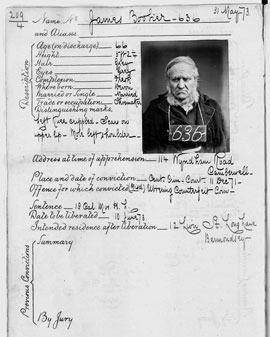 209
4
31 May 73
Name No
James Booker - 636
and Aliases
Description
Age (on discharge) 66
Height
Hair Grey
Eyes Grey
Complexion Fresh
Where born
Married or Single Married
Trade or occupation
Distinguishing marks
left crippled - on
upper lip - Mole left shoulder
636
Address at time of apprehension 114 Wyndham Road
Camberwell
Place and date of conviction Cent. Crim. Court 71
Offence for which convicted Uttering Counterfeit Coin
Sentence 18 Cal. H. L.
Date to be liberated 10 73
Intended residence after liberation 12
Bermondsey
Previous Convictions
Summary
By Jury